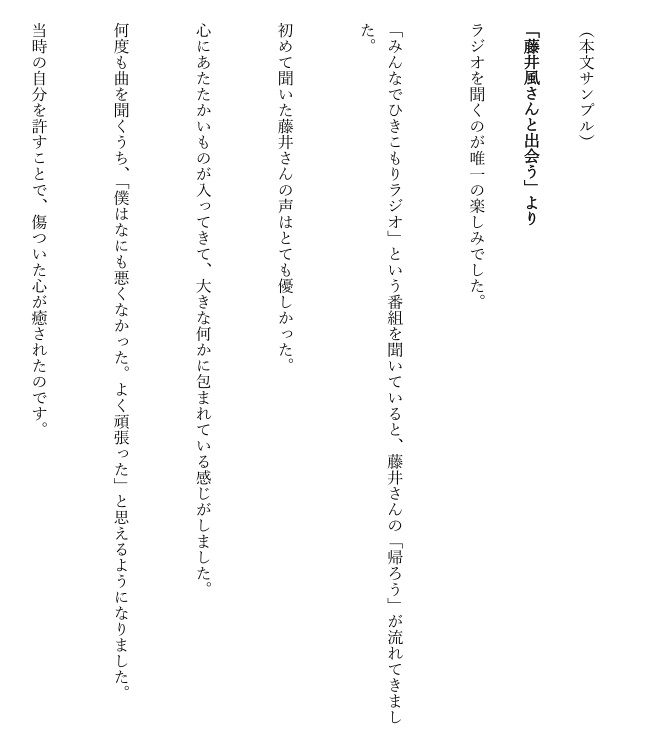 （本文サンプル）
「藤井風さんと出会う」より
ラジオを聞くのが唯一の楽しみでした。
「みんなでひきこもりラジオ」という番組を聞いていると、藤井さんの「帰ろう」が流れてきまし
た。
初めて聞いた藤井さんの声はとても優しかった。
心にあたたかいものが入ってきて、大きな何かに包まれている感じがしました。
何度も曲を聞くうち、「僕はなにも悪くなかった。よく頑張った」と思えるようになりました。
当時の自分を許すことで、傷ついた心が癒されたのです。